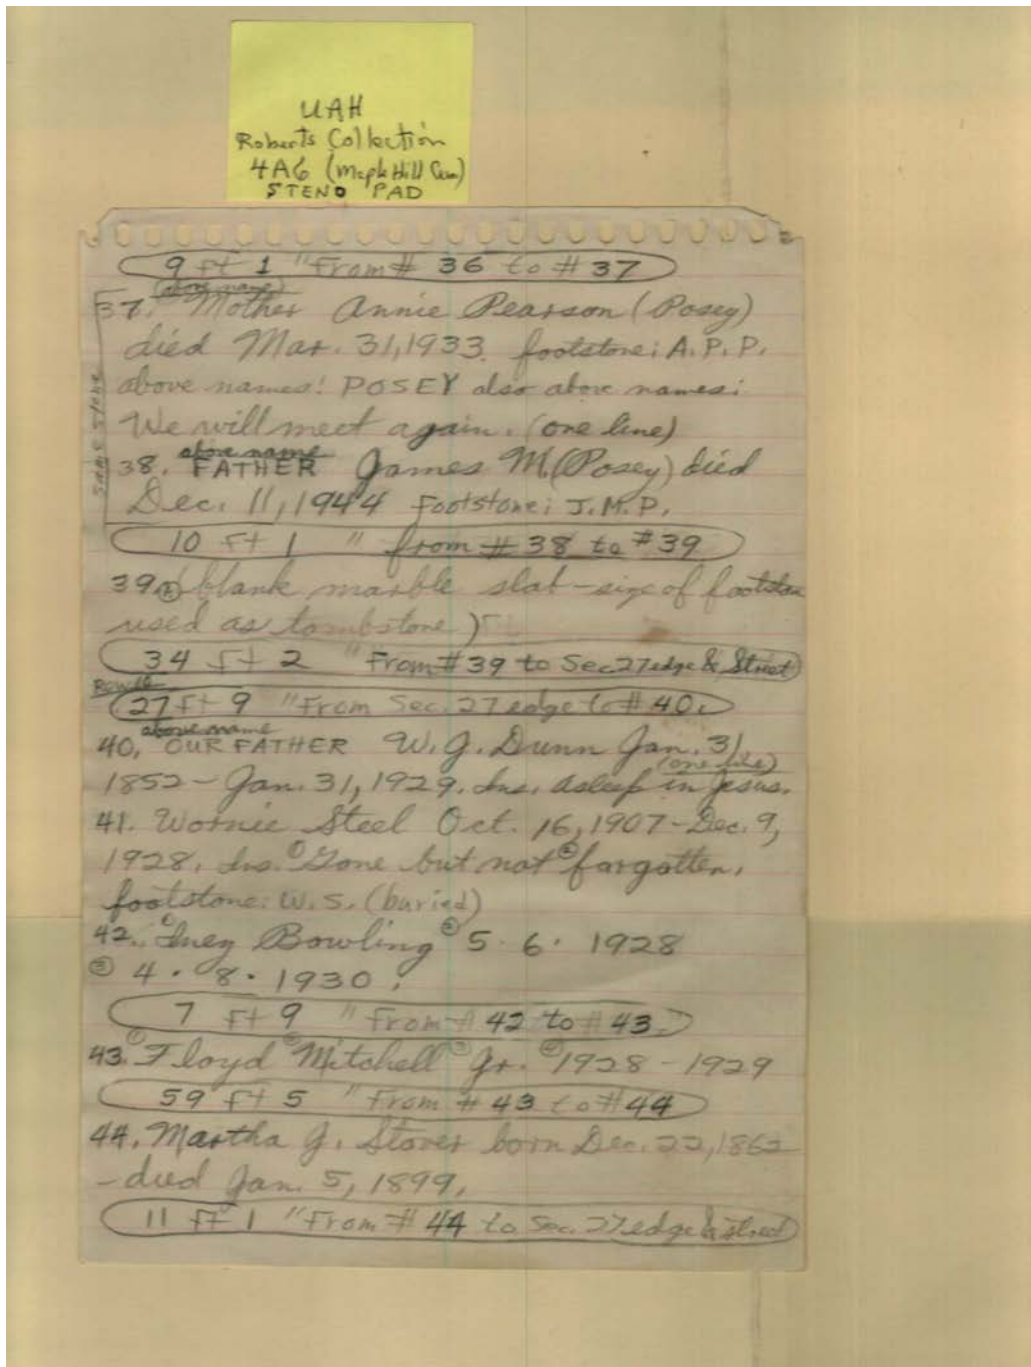 UAH
Roberts Collection
4A6 (Maple Hill Cem)
STENO PAD
9 ft 1 " From # 36 to # 37
(above name)
37. Mother Annie Pearson (Posey)
died Mar. 31, 1933. footstone: A.P.P.
above names: POSEY also above names:
We will meet again. (one line)
above name
38. FATHER James M. (Posey) died
Dec. 11, 1944 Footstone: J.M.P.
SAME STONE
10 ft 1 " from # 38 to #39
39. (blank marble slab - size of footstone
used as tombstone)
34 ft 2 " From # 39 to Sec 27 edge & Street
27 ft 9 " From Sec. 27 edge to # 40.
above name
40. OUR FATHER W. J. Dunn Jan. 31
(one line)
1852 - Jan. 31, 1929. Ins. Asleep in Jesus.
41. Wornie Steel Oct. 16, 1907 - Dec. 9,
1928. Ins. ① Gone but not ② forgotten.
footstone: W.S. (buried)
42. ① Inez Bowling ② 5 · 6 · 1928
③ 4 · 8 · 1930.
7 ft 9 " From # 42 to # 43.
43. ① Floyd ② Mitchell ③ Jr. ④ 1928 - 1929
59 ft 5 " From # 43 to # 44
44. Martha J. Stover born Dec. 22, 1862
- died Jan. 5, 1899.
11 ft 1 " From # 44 to Sec. 27 edge & street